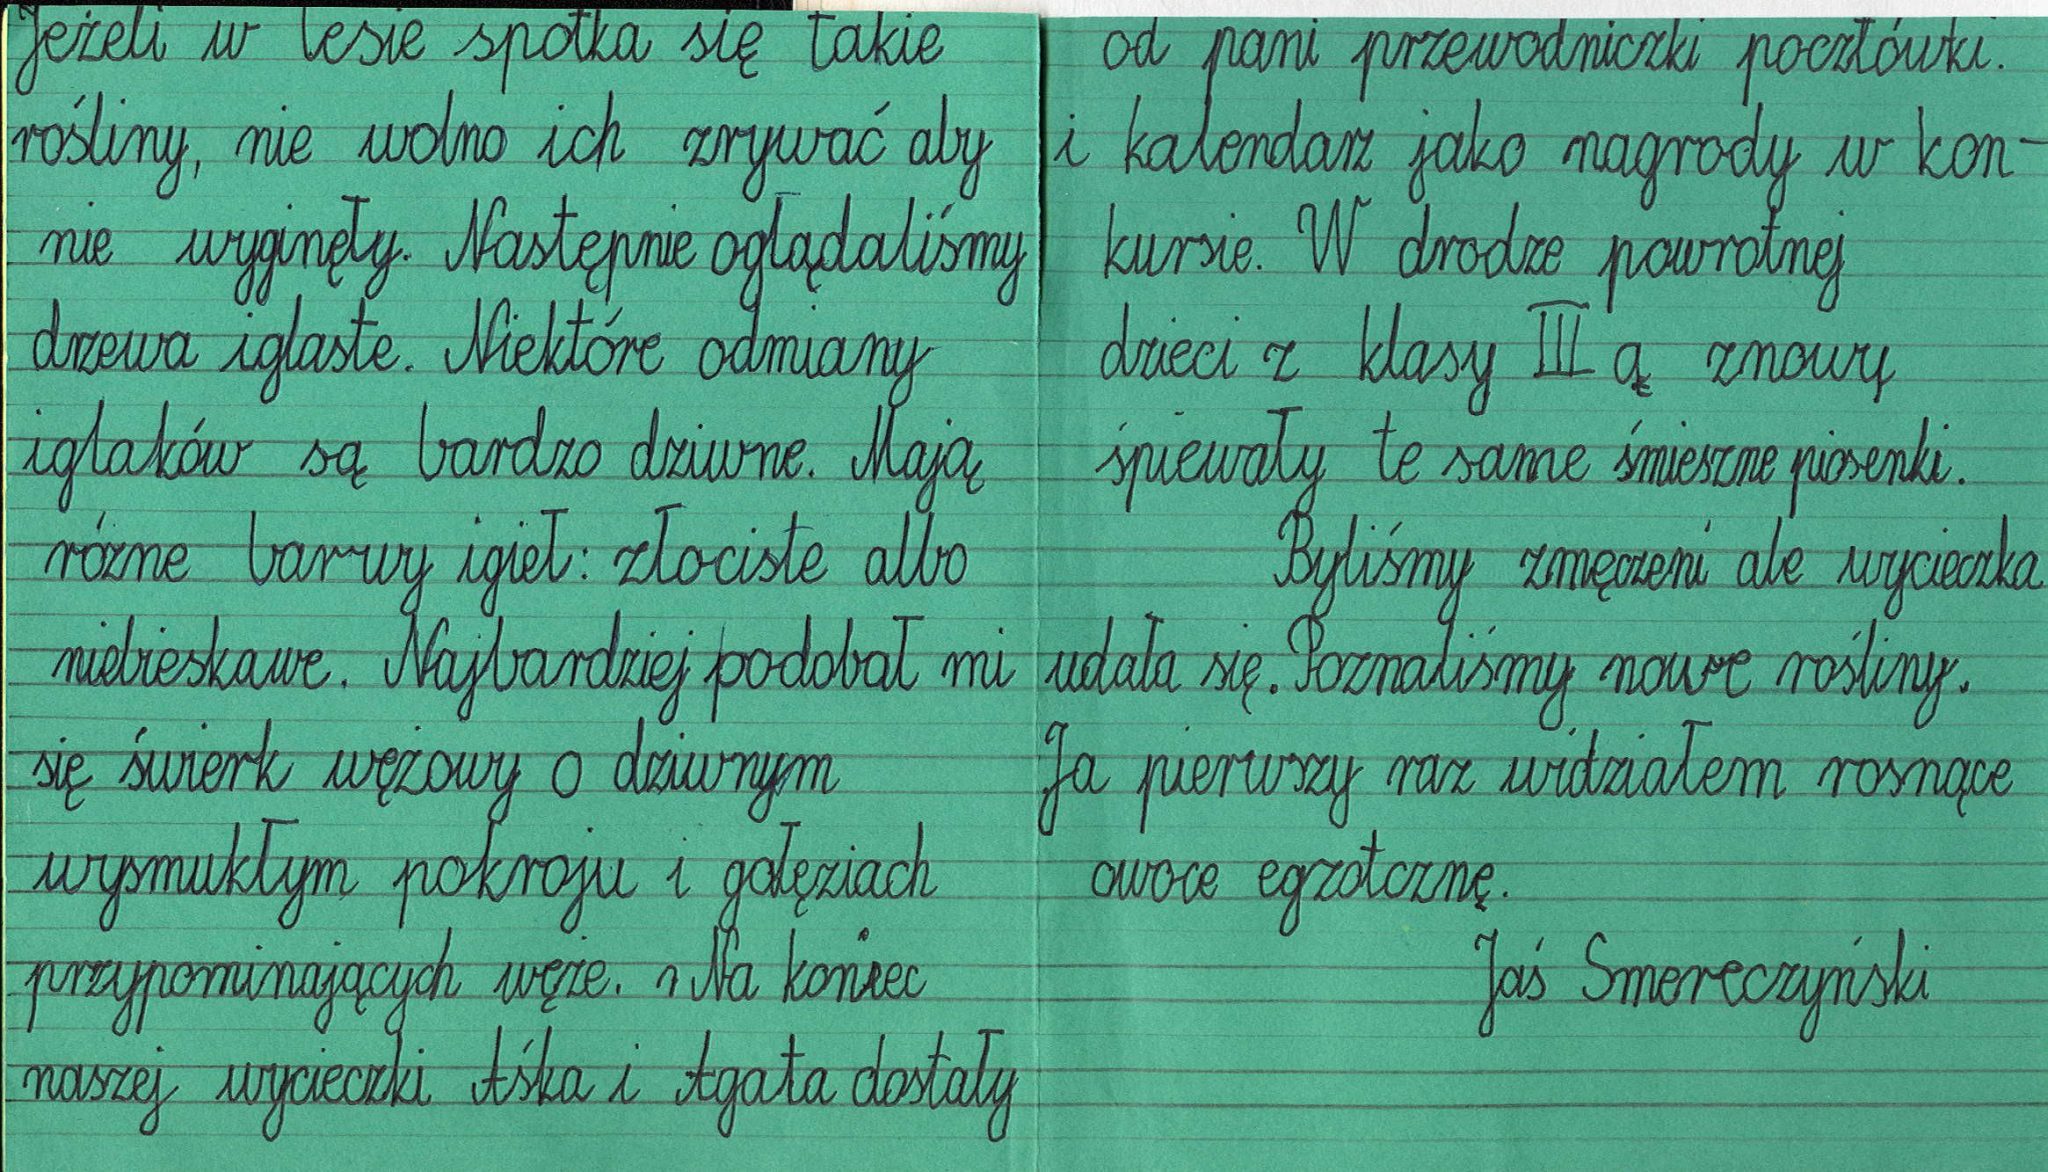 Jeżeli w lesie spotka się takie
rośliny, nie wolno ich zrywać aby
nie wyginęły. Następnie oglądaliśmy
drzewa iglaste. Niektóre odmiany
iglaków są bardzo dziwne. Mają
różne barwy igieł: złociste albo
niebieskawe. Najbardziej podobał mi
się świerk wężowy o dziwnym
wysmukłym pokroju i gołęziach
przypominających węże. Na koniec
naszej wycieczki Aśka i Agata dostały
od pani przewodniczki pocztówki.
i kalendarz jako nagrody w kon-
kursie. W drodze powrotnej
dzieci z klasy III ą znowų
śpiewały te same śmieszne piosenki.
Byliśmy zmęczeni ale wycieczka
udała się. Poznaliśmy nowe rośliny.
Ja pierwszy raz widziałem rosnące
owoce egzotcznę.
Jaś Smereczyński